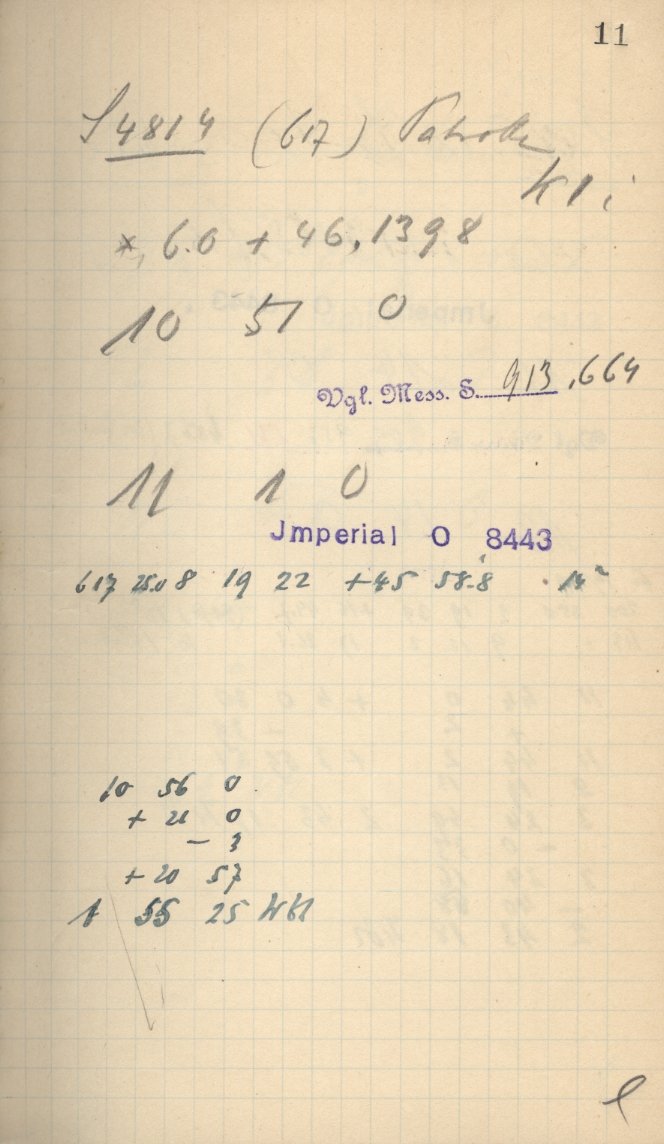 11
S 4814 (617) Patroclus
Kl.
* 6.0 + 46,1398
10 51 0
Vgl. Mess. S. 913,664
11 1 0
Jmperial O 8443
617 25.0 8 19 22 +45 58.8 14
10 56 0
+ 21 0
- 3
+ 20 57
1 55 25